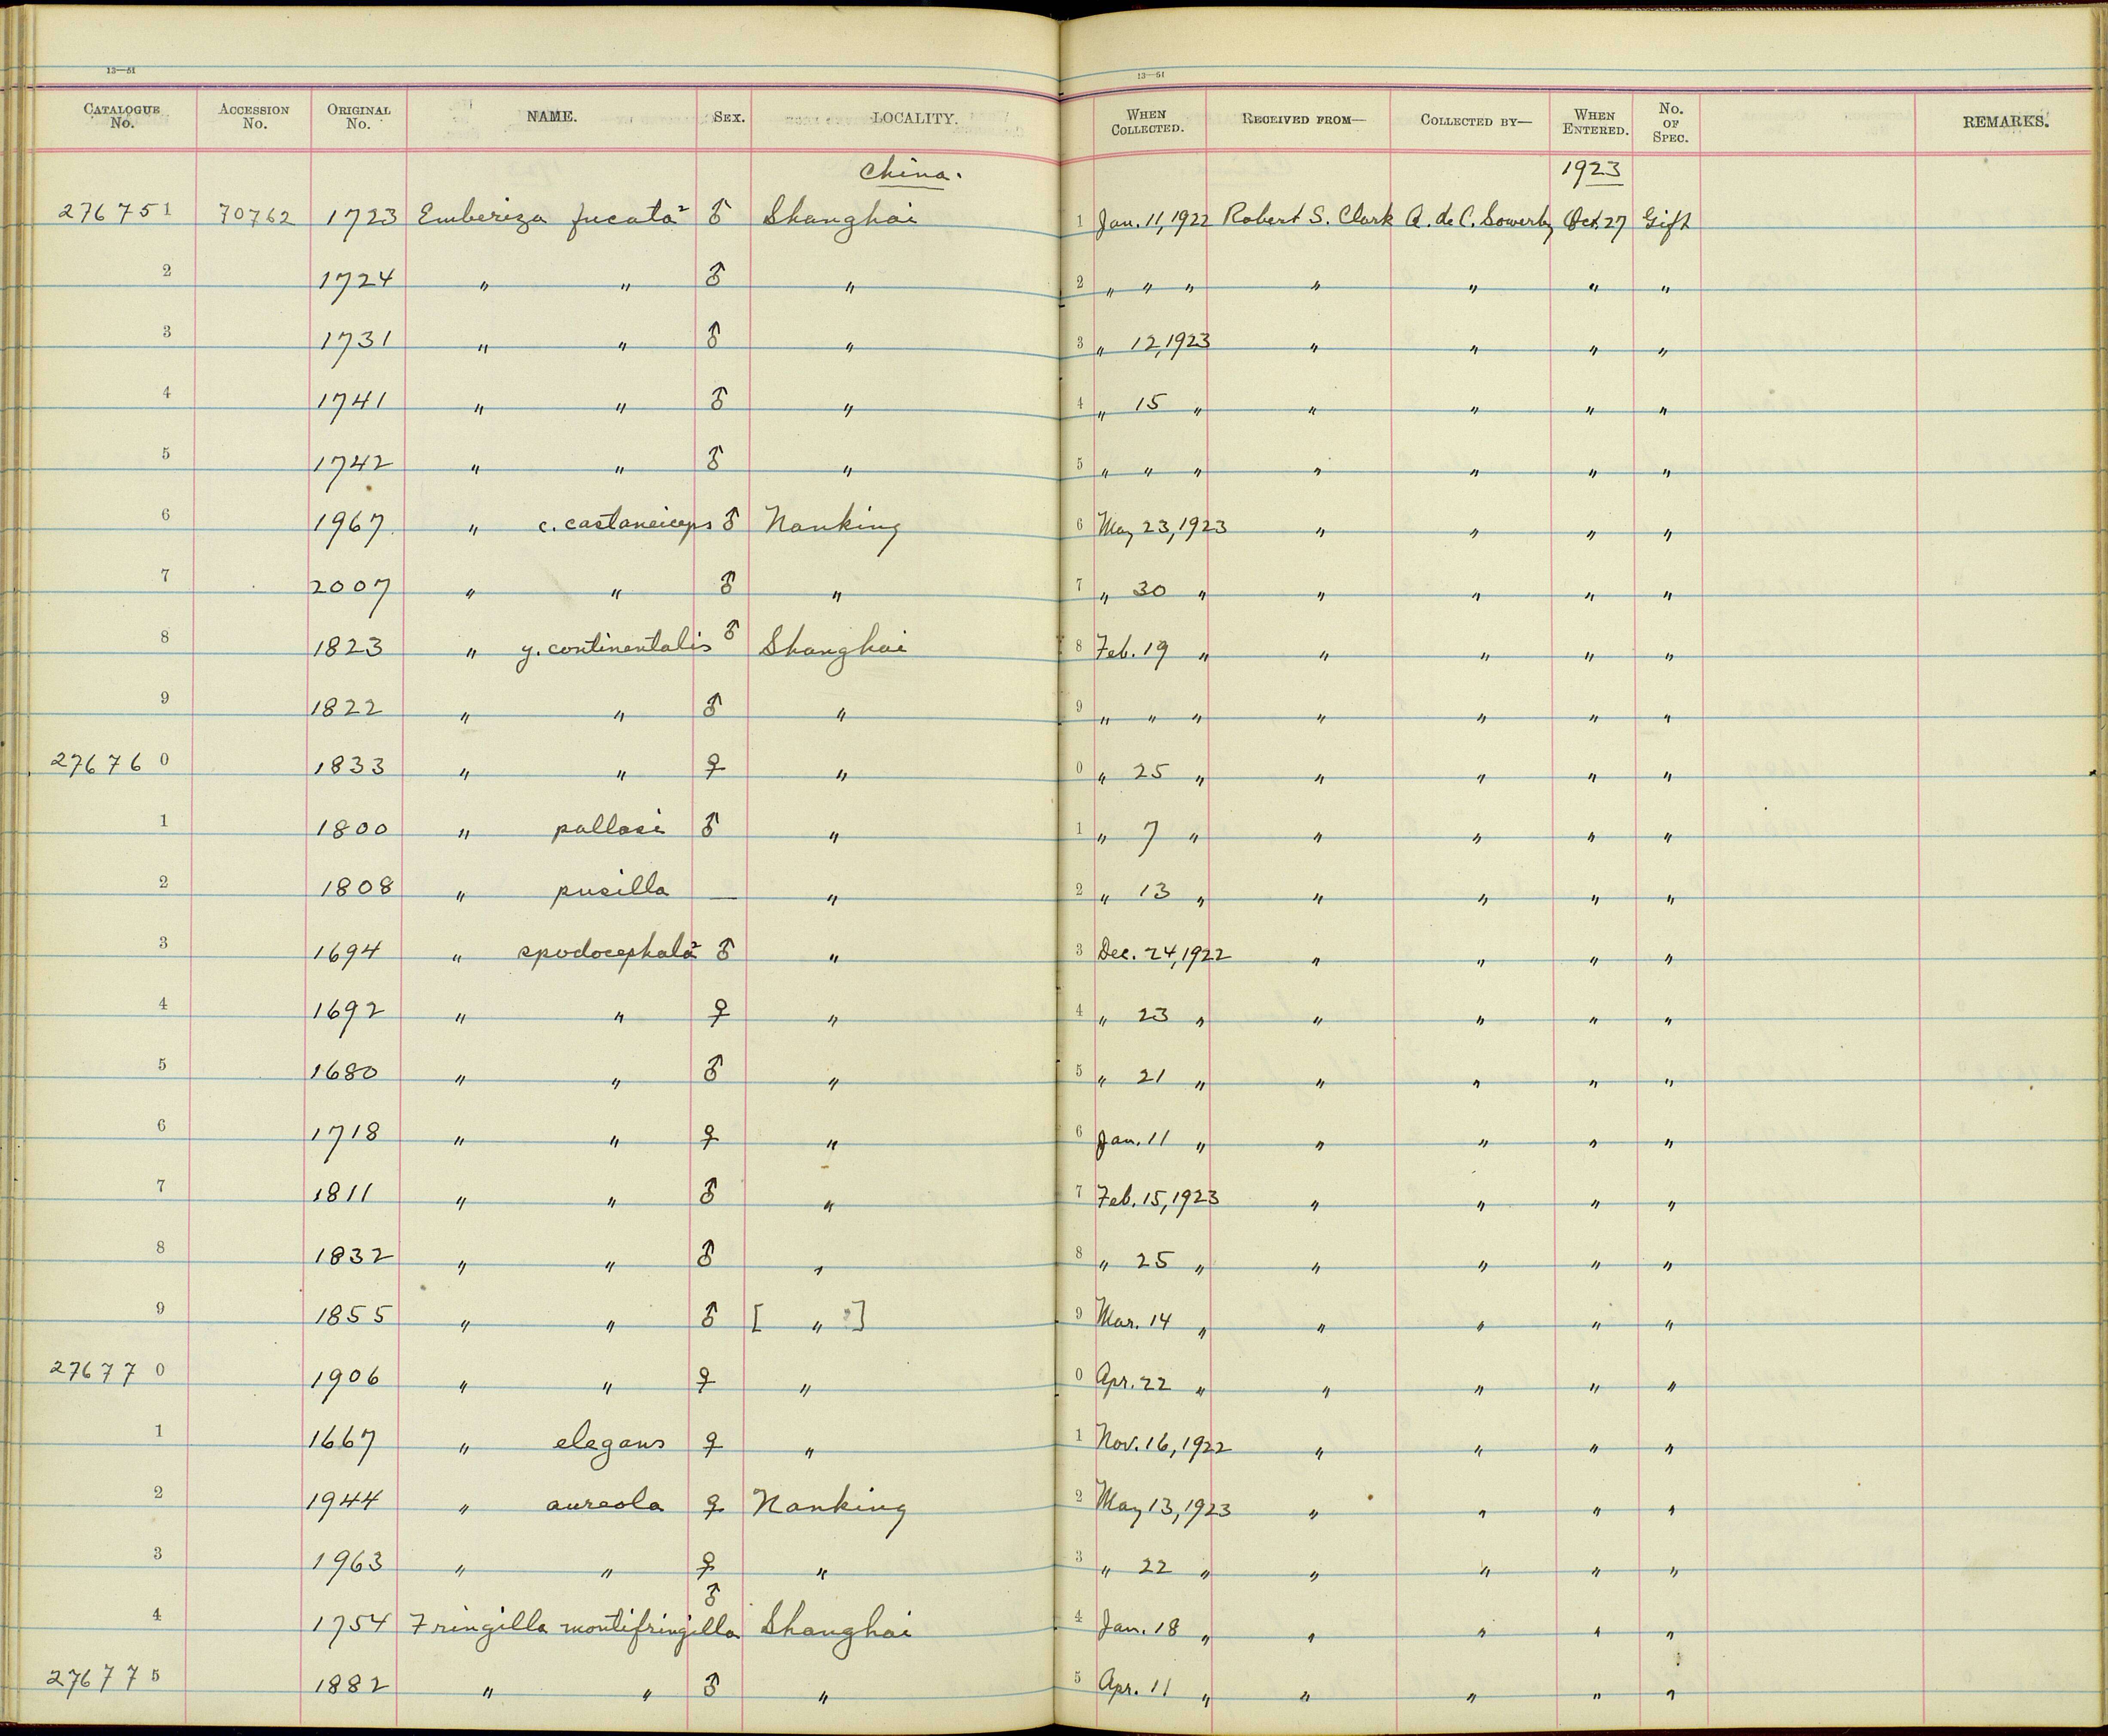 13—51 13—51
CATALOGUE No. ACCESSION No. ORIGINAL No. NAME. SEX. LOCALITY. WHEN COLLECTED. RECEIVED FROM— COLLECTED BY— WHEN ENTERED. No. OF SPEC. REMARKS.
China. 1923
276751 70762 1723 Emberiza fucata² ♂ Shanghai 1 Jan. 11, 1922 Robert S. Clark A. de C. Sowerby Oct. 27 Gift
2 1724 " " ♂ " 2 " " " " " " "
3 1731 " " ♂ " 3 " 12, 1923 " " " "
4 1741 " " ♂ " 4 " 15 " " " " "
5 1742 " " ♂ " 5 " " " " " " "
6 1967 " c. castaneiceps ♂ Nanking 6 May 23, 1923 " " " "
7 2007 " " ♂ " 7 " 30 " " " " "
8 1823 " y. continentalis ♂ Shanghai 8 Feb. 19 " " " " "
9 1822 " " ♂ " 9 " " " " " " "
276760 1833 " " ♀ " 0 " 25 " " " " "
1 1800 " pallasi ♂ " 1 " 7 " " " " "
2 1808 " pusilla — " 2 " 13 " " " " "
3 1694 " spodocephala² ♂ " 3 Dec. 24, 1922 " " " "
4 1692 " " ♀ " 4 " 23 " " " " "
5 1680 " " ♂ " 5 " 21 " " " " "
6 1718 " " ♀ " 6 Jan. 11 " " " " "
7 1811 " " ♂ " 7 Feb. 15, 1923 " " " "
8 1832 " " ♂ " 8 " 25 " " " " "
9 1855 " " ♂ [ " ] 9 Mar. 14 " " " " "
276770 1906 " " ♀ " 0 Apr. 22 " " " " "
1 1667 " elegans ♀ " 1 Nov. 16, 1922 " " " "
2 1944 " aureola ♀ Nanking 2 May 13, 1923 " " " "
3 1963 " " ♀ " 3 " 22 " " " " "
4 1754 Fringilla montifringilla ♂ Shanghai 4 Jan. 18 " " " " "
276775 1882 " " ♂ " 5 Apr. 11 " " " " "